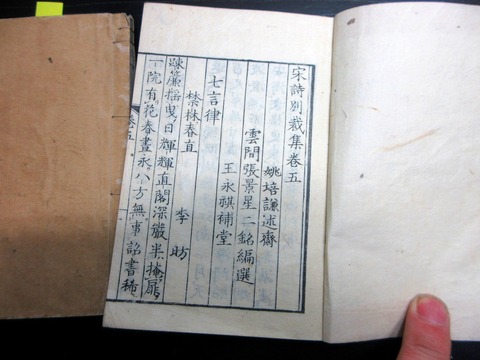 宋詩別裁集卷五
姚培謙述齋
雲間張景星二銘編選
王永祺補堂
七言律
禁林春直
李昉
疎簾摇曳日輝輝直閣深嚴半掩扉
一院有花春晝永八方無事詔書稀
卷五